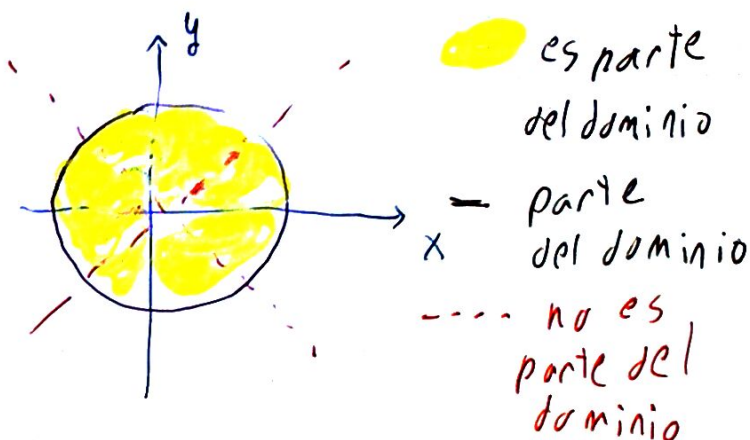 y
es parte
del dominio
parte
del dominio
x
no es
parte del
dominio